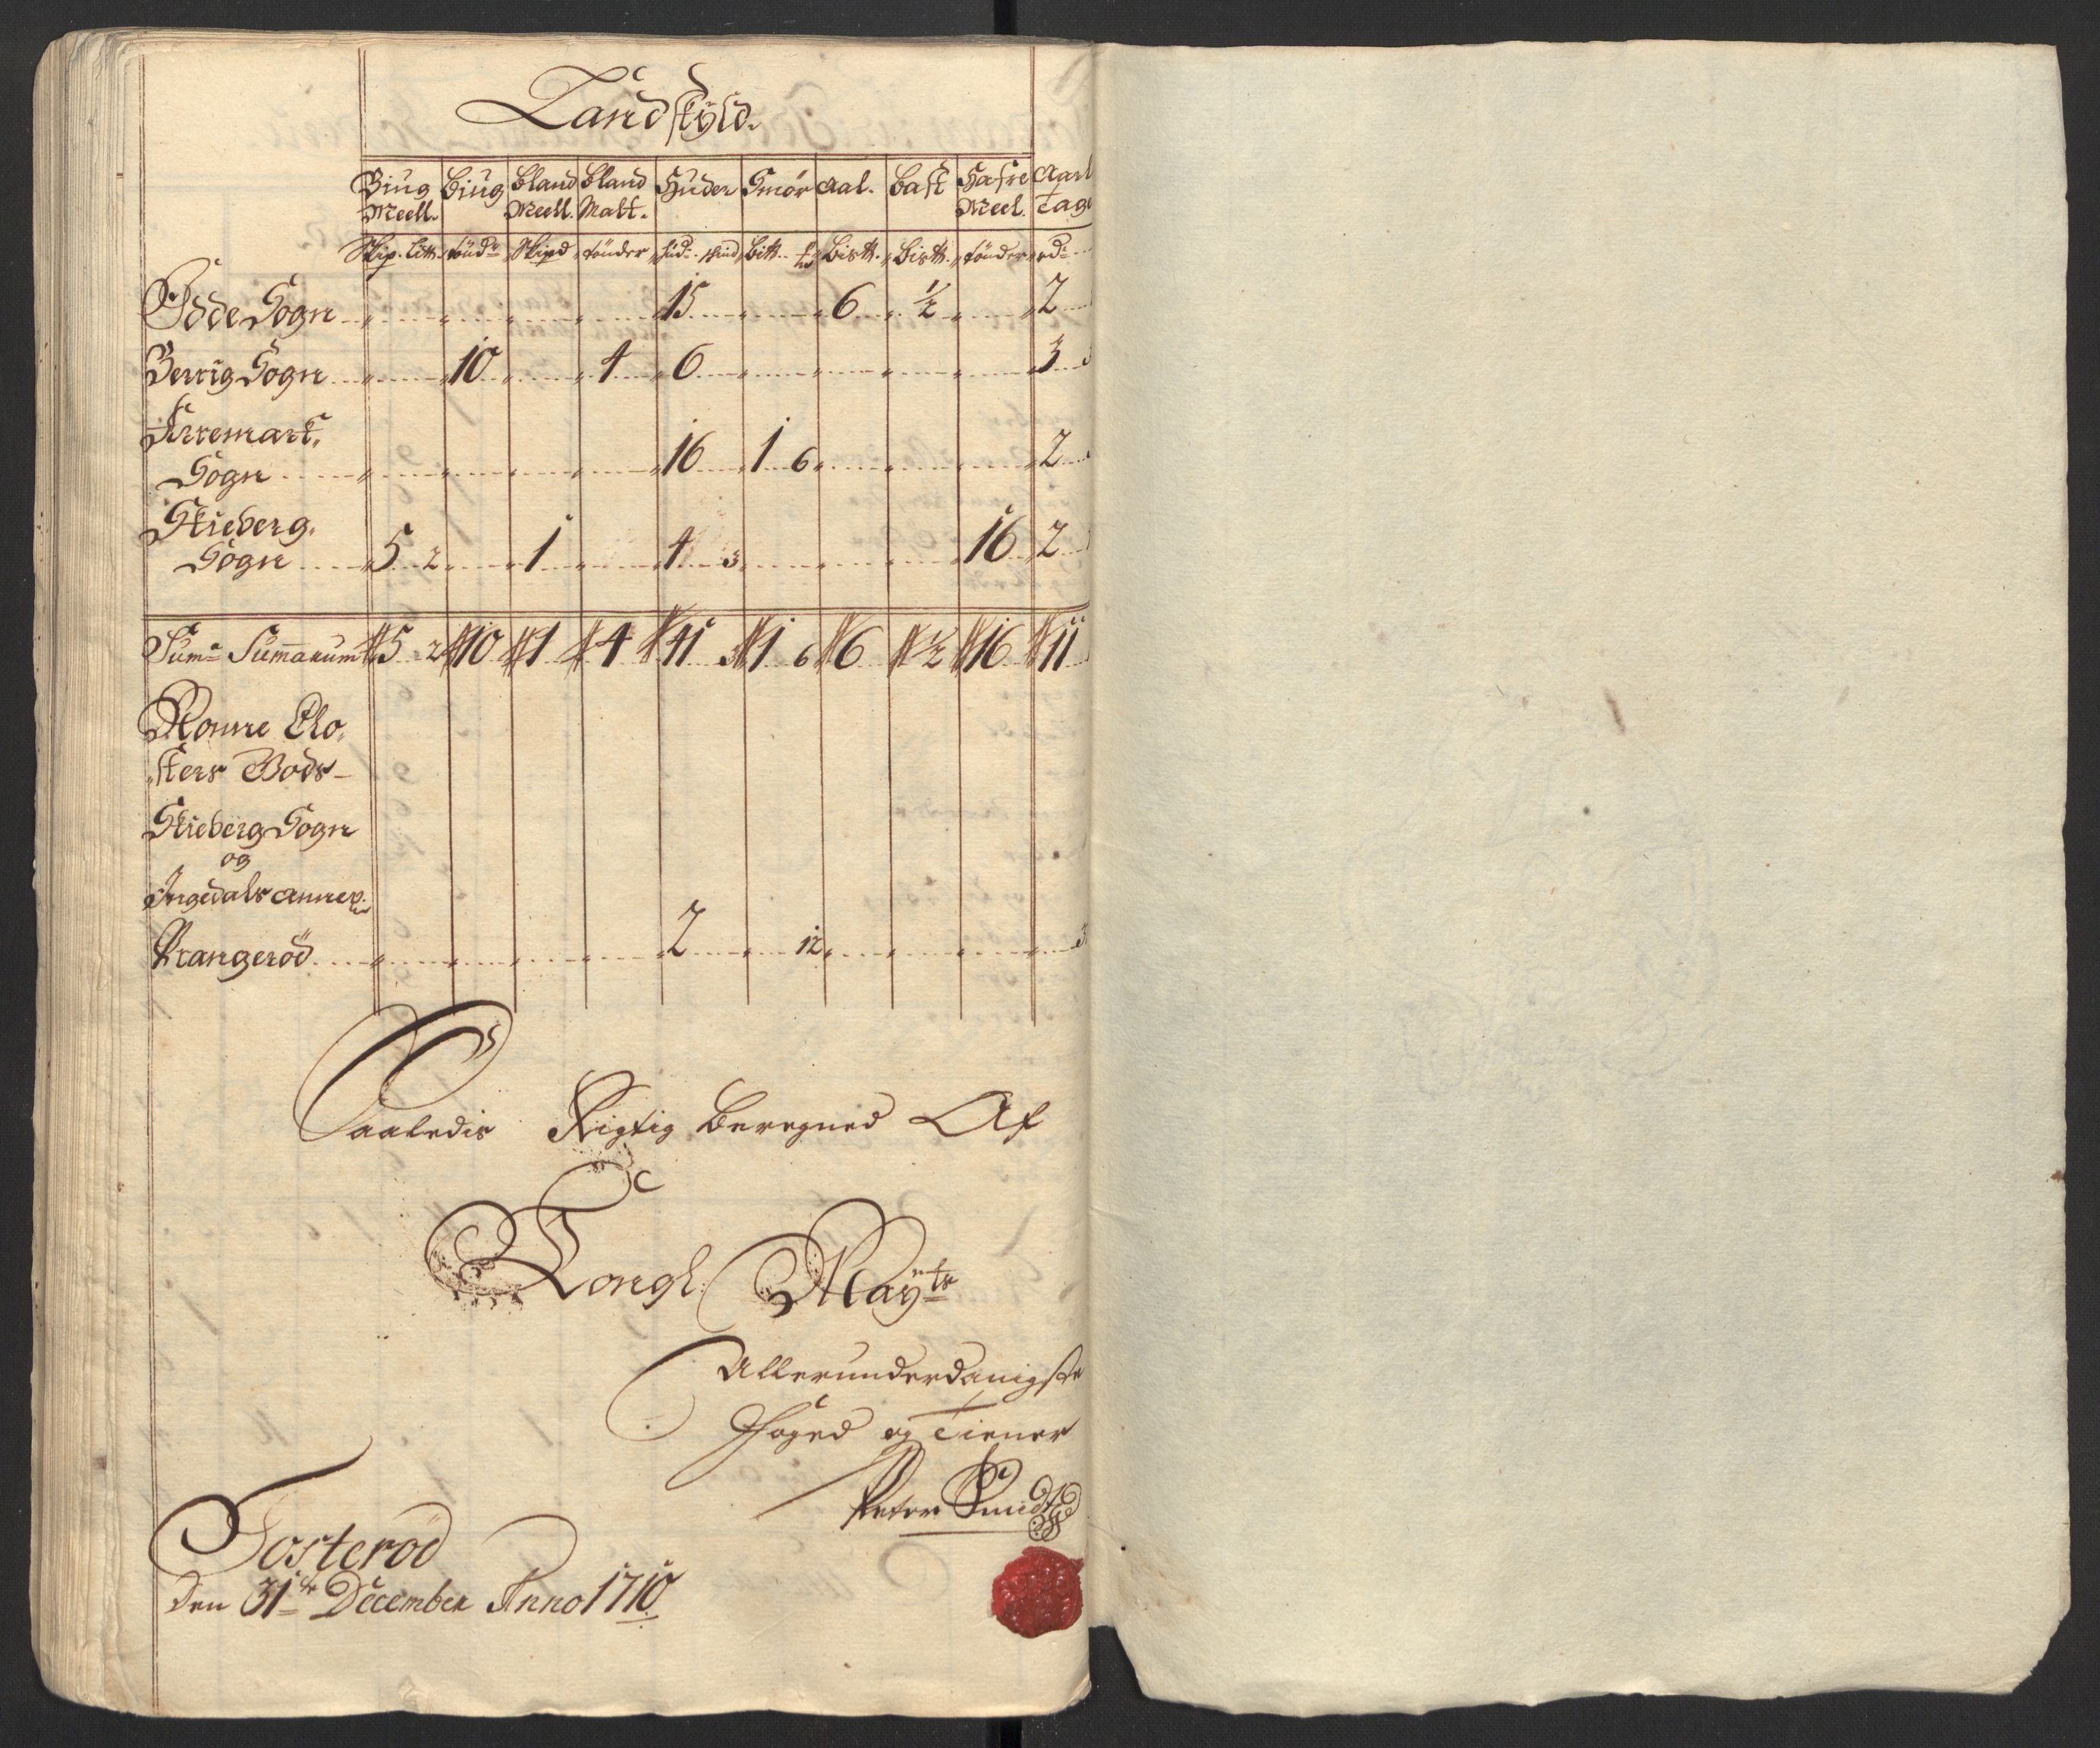 Landskÿld.
Biug Meell. Biug Bland Meell. Bland Malt. Huder Smör Aal. Bast Hafre Meel.
Skip. tönd. Skipd tönder hud. skind Bitt. Bistt. Bistt. tönder
Idde Sogn 15 6 ½ 2
Berrig Sogn 10 4 6 3
Arremark
Sogn 16 1 6 2
Skieberg
Sogn 5 2 1 4 3 16 2
Sum: Sum̄arum 5 2 10 1 4 41 3 1 6 6 ½ 16 11
Nonne Clo-
sters Gods
Skieberg Sogn
og
Ingedals annex
Prangeröd 2 12 3
Saaledis Rigtig Beregned Af
Kongl: Mayts
Allerunderdanigste
Foged og Tiener
Peter Smidt
Tosteröd
den 31te December Anno 1710.